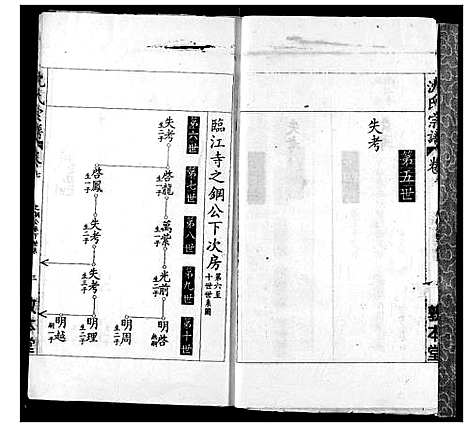 氏宗譜
卷
第五世
失考
敦本堂
臨江寺之鋼公下次房第六至十世世系圖
第六世
第七世
第八世
第九世
第十世
失考
生二子
啓龍
生一子
萬紫
生一子
光前
生二子
明啓
明周
生二子
啓鳳
生一子
失考
生二子
失考
生三子
明理
生二子
明越
嗣一子
敦本堂